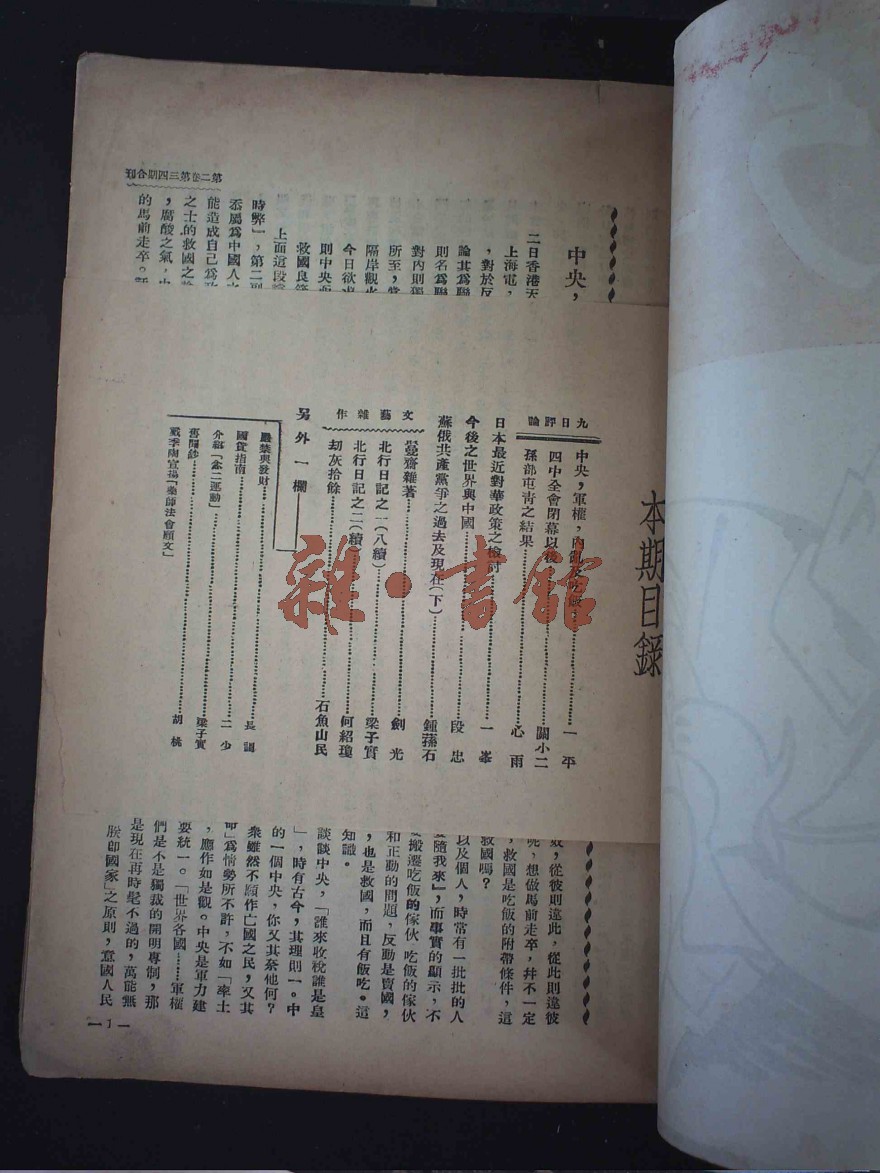 本期目錄
九日評論
中央，軍權，內亂及吃飯……一平
四中全會閉幕以後……關小二
孫部屯青之結果……心雨
日本最近對華政策之檢討……一峯
今後之世界與中國……段忠
蘇俄共產黨爭之過去及現在(下)……鍾蓀石
文藝雜作
曼齋雜著……劍光
北行日記之一(八續)……梁子實
北行日記之二(續)……何紹瓊
刧灰拾餘……石魚山民
另外一欄
嚴禁與發財……長調
國貨指南……二少
介紹「念二運動」
舊聞鈔……梁子實
戴季陶宣揚「藥師法會願文」……胡桃
第二卷第三四期合刊
中央，
二日香港天
上海電，
，對於反
論其爲聯
則名爲聯
對內則獨
所至，
隔岸觀火
今日欲
則中央
救國良
上面這段
時弊」，第二
忝屬爲中國人
能造成自己爲
之士的救國之
，腐酸之氣，
的馬前走卒。
，從彼則違此，從此則違彼
呢，想做馬前走卒，幷不一定
，救國是吃飯的附帶條件，這
救國嗎？
以及個人，時常有一批批的人
隨我來』，而事實的顯示，不
搬遷吃飯的傢伙 吃飯的傢伙
和正動的問題，反動是賣國，
，也是救國，而且有飯吃。這
知識。
談談中央，「誰來收稅誰是皇
」，時有古今，其理則一。中
的一個中央，你又其奈他何？
衆雖然不願作亡國之民，又其
命」爲情勢所不許，不如「率土
，應作如是觀。中央是軍力建
要統一。「世界各國……軍權
們是不是獨裁的開明專制，那
是現在再時髦不過的，萬能無
朕即國家」之原則，意國人民
—1—
雜·書館